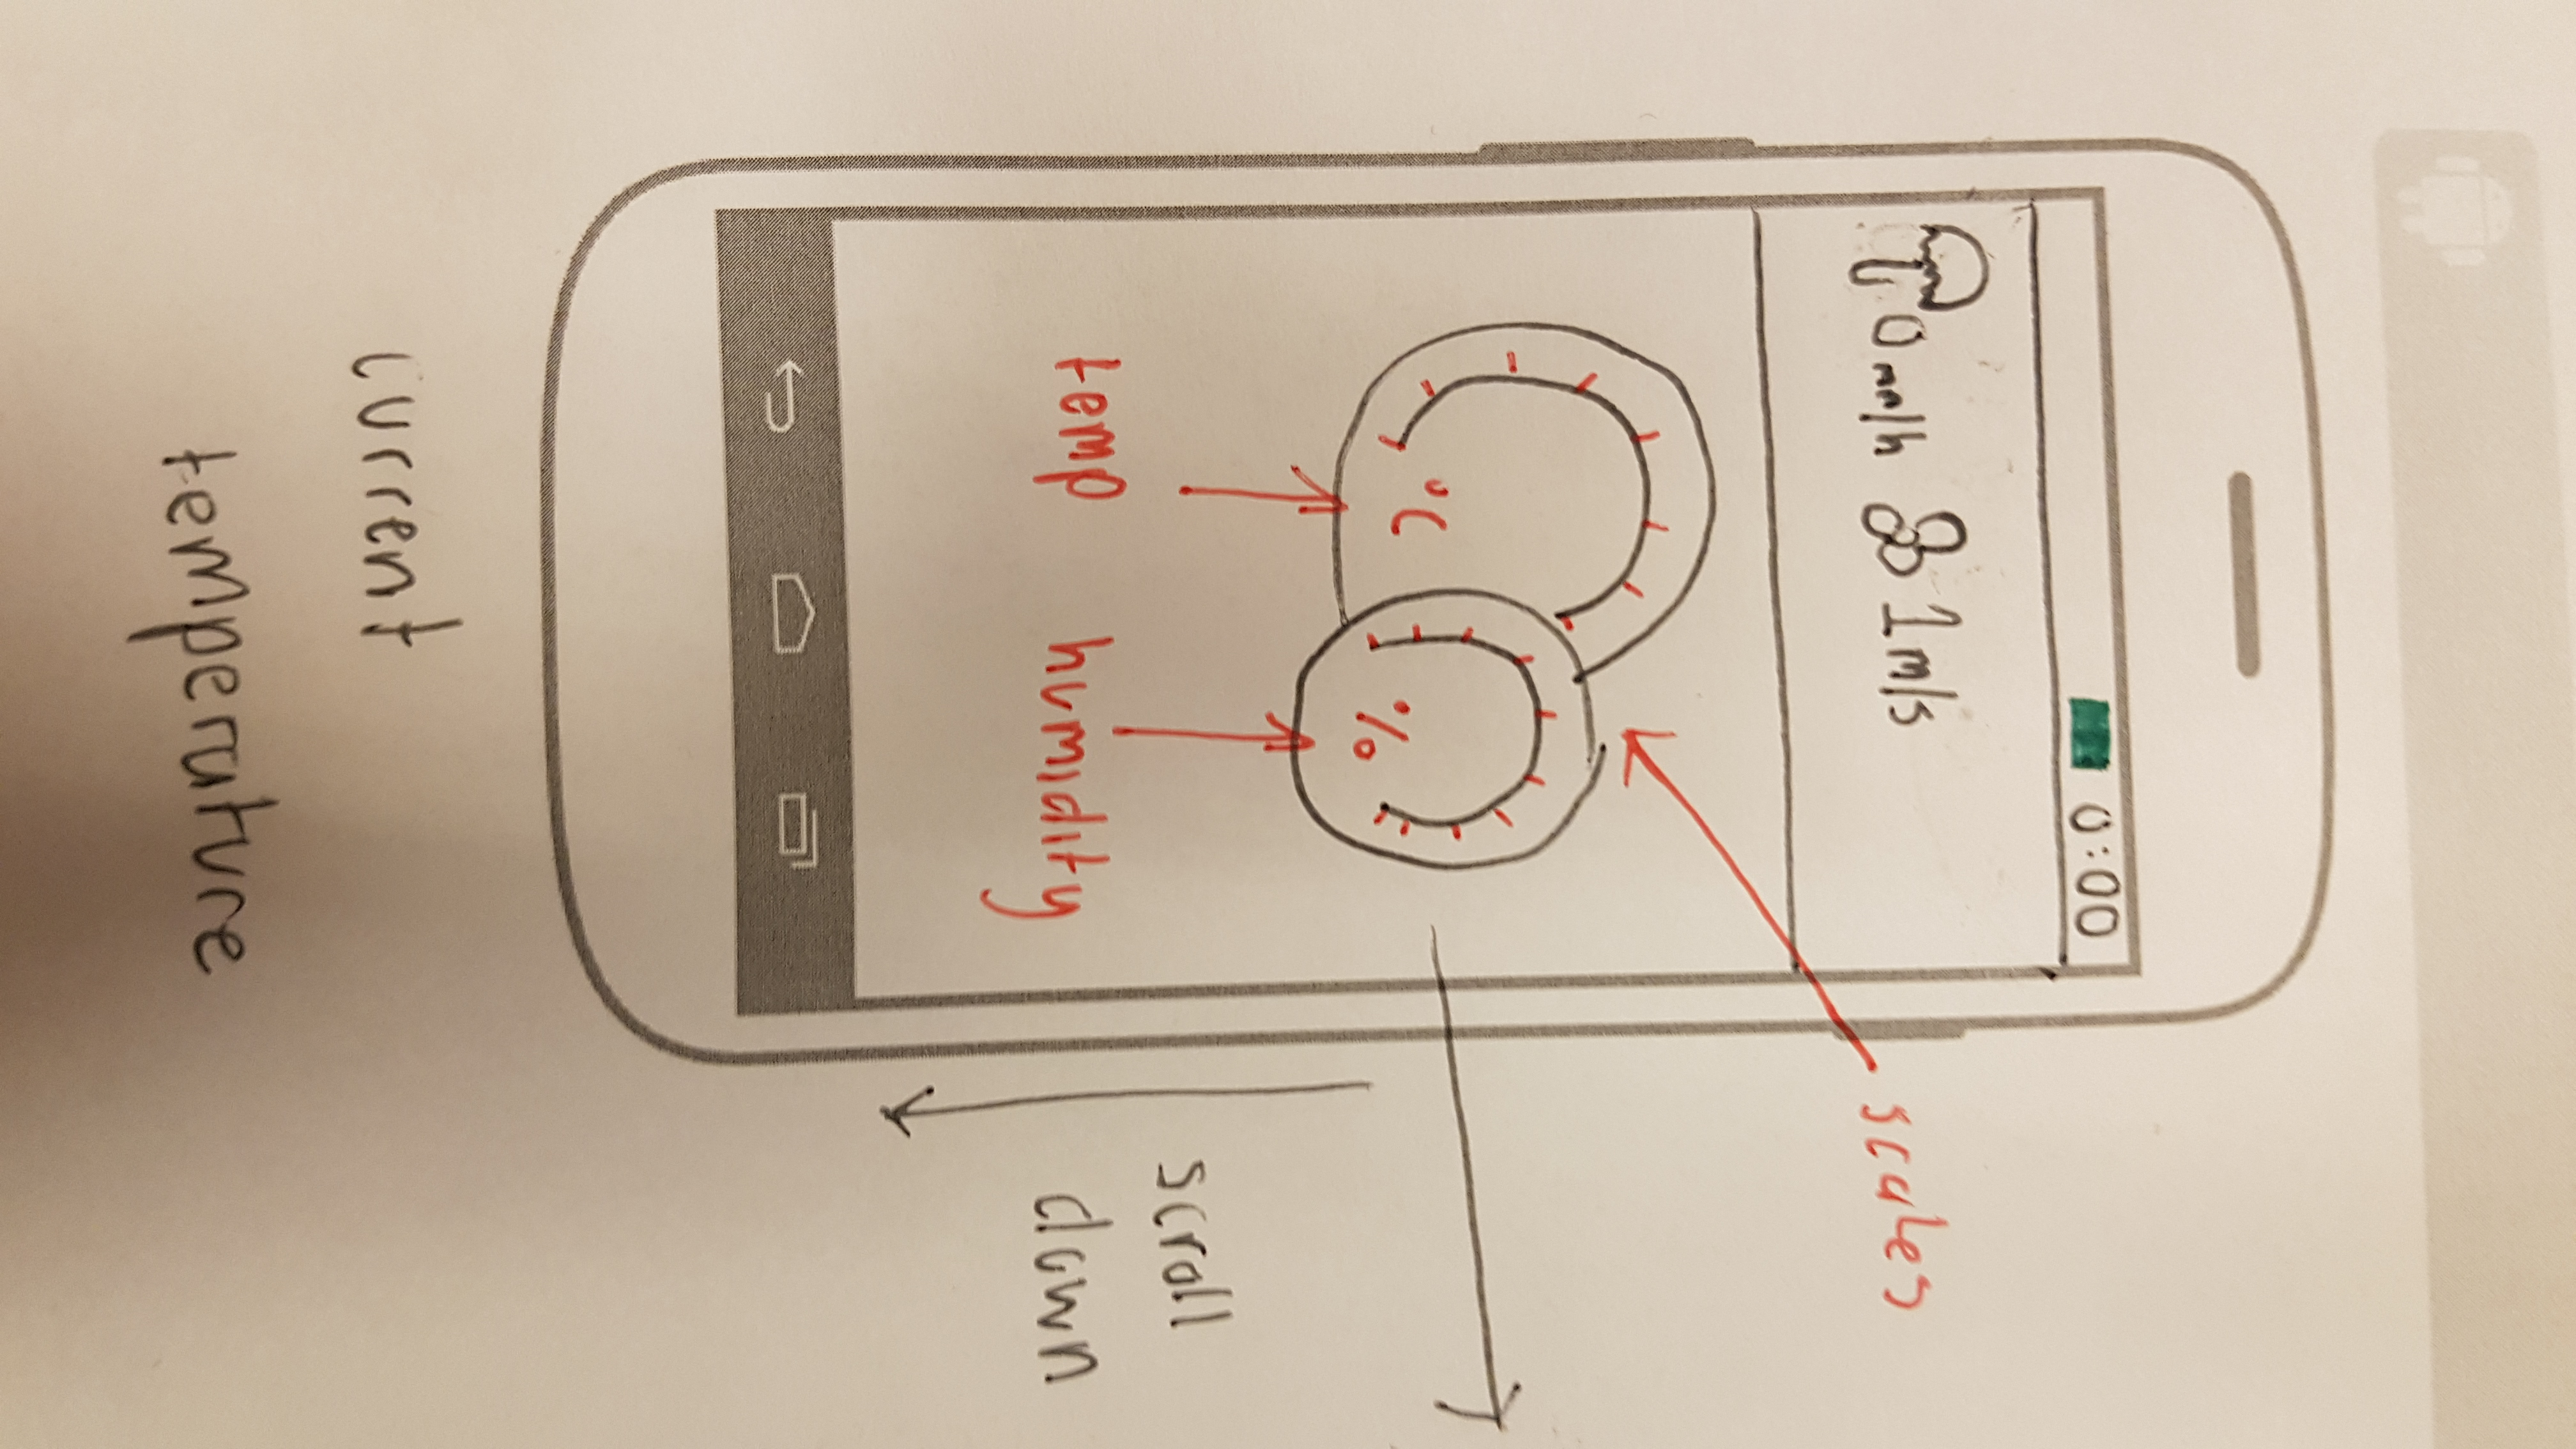 0:00
0 mm/h 1 m/s
scales
°C
%
temp humidity
scroll
down
current
temperature